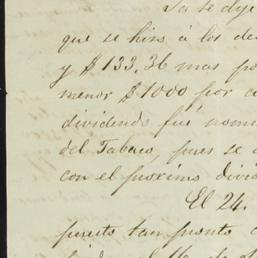 Ya se dij
que se hizo á los de
y $133,36 mas po
menor $1000 por c
dividendo fué nom
del Tabaco, pues se
con el proximo divi
El 24.
puesto tan pronto